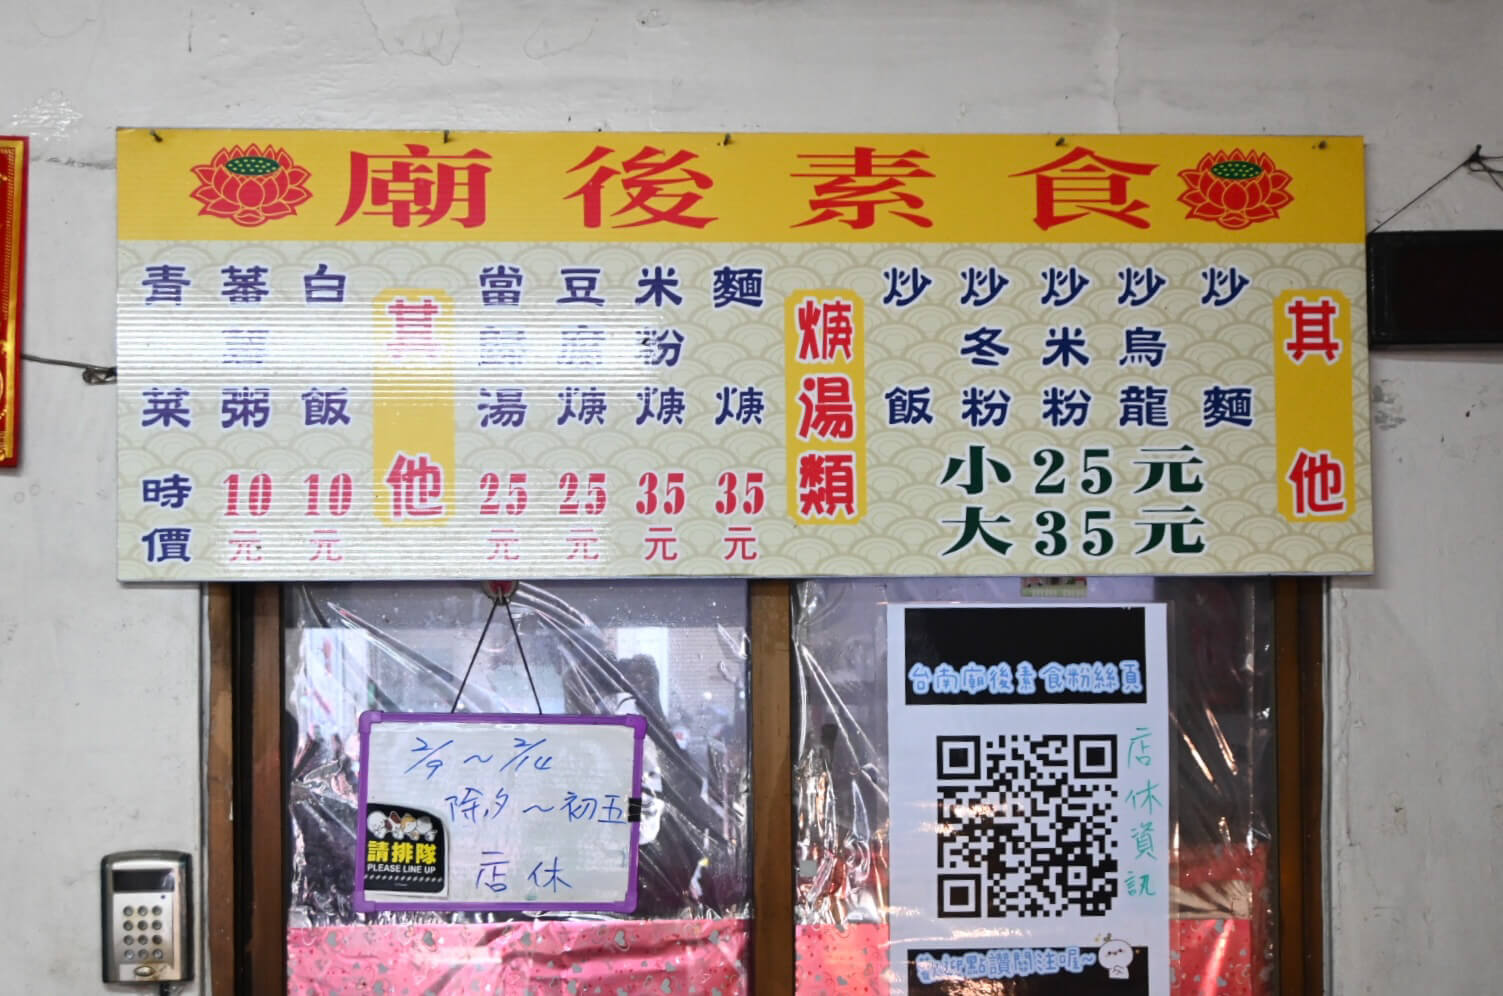 廟後素食
其他
炒麵
炒烏龍
炒米粉
炒冬粉
炒飯
小25元
大35元
焿湯類
麵焿 35元
米粉焿 35元
豆腐焿 25元
當歸湯 25元
其他
白飯 10元
蕃薯粥 10元
青菜 時價
2/9～2/14
除夕～初五
店休
請排隊
PLEASE LINE UP
台南廟後素食粉絲頁
店休資訊
歡迎點讚關注喔~